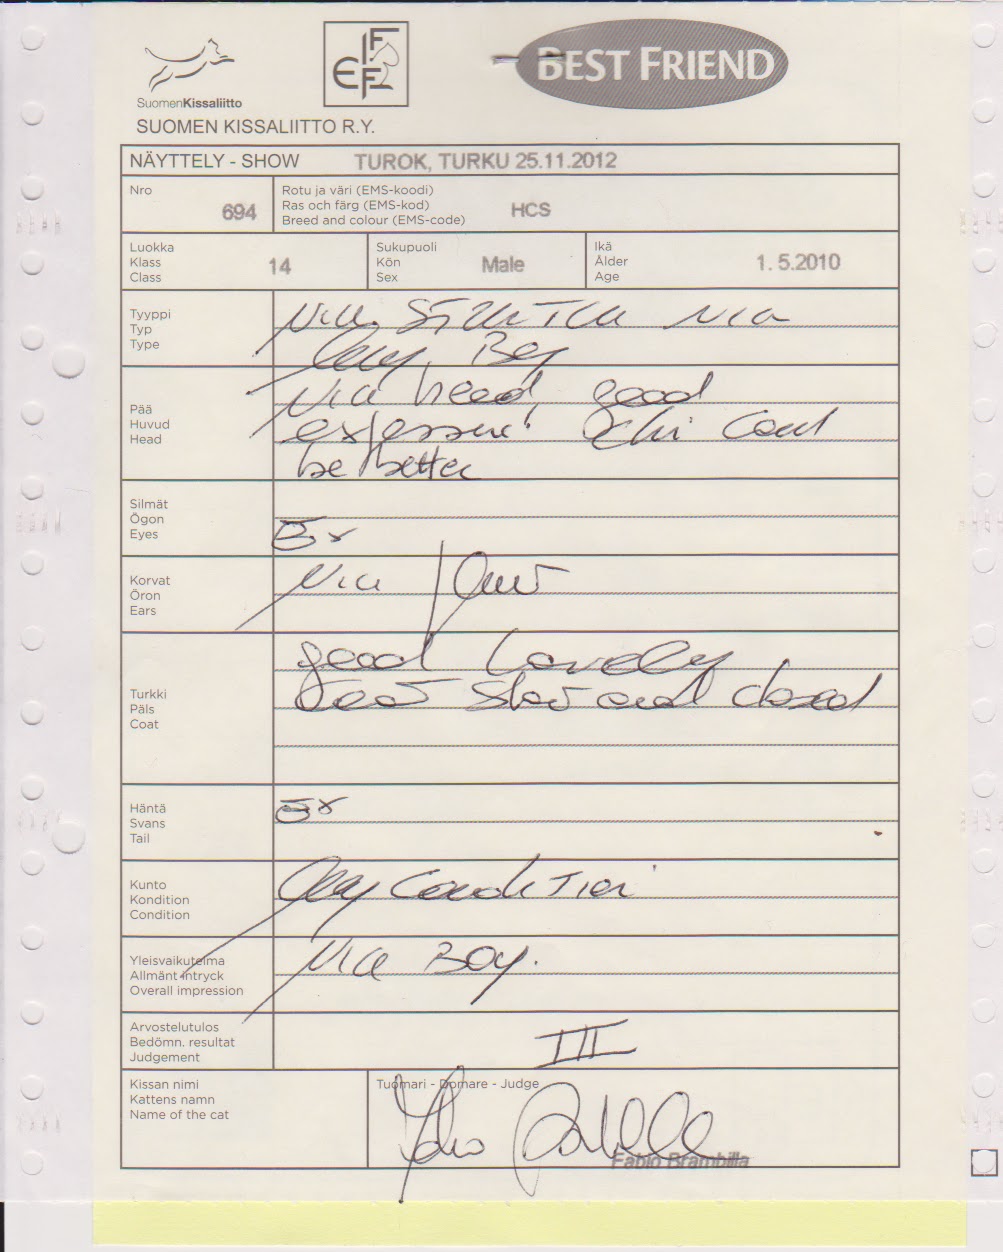 SuomenKissaliitto
FIFE
BEST FRIEND
SUOMEN KISSALIITTO R.Y.
NÄYTTELY - SHOW TUROK, TURKU 25.11.2012
Nro 694
Rotu ja väri (EMS-koodi)
Ras och färg (EMS-kod)
Breed and colour (EMS-code)
HCS
Luokka
Klass
Class
14
Sukupuoli
Kön
Sex
Male
Ikä
Ålder
Age
1. 5.2010
Tyyppi
Typ
Type
Boy
Pää
Huvud
Head
Nice head, good
expession! Chin could
be better
Silmät
Ögon
Eyes
Ex
Korvat
Öron
Ears
Nice
Turkki
Päls
Coat
good lovely
coat short and closed
Häntä
Svans
Tail
Ex
Kunto
Kondition
Condition
Condition
Yleisvaikutelma
Allmänt intryck
Overall impression
Nice Boy.
Arvostelutulos
Bedömn. resultat
Judgement
III
Kissan nimi
Kattens namn
Name of the cat
Tuomari - Domare - Judge
Fabio Brambilla